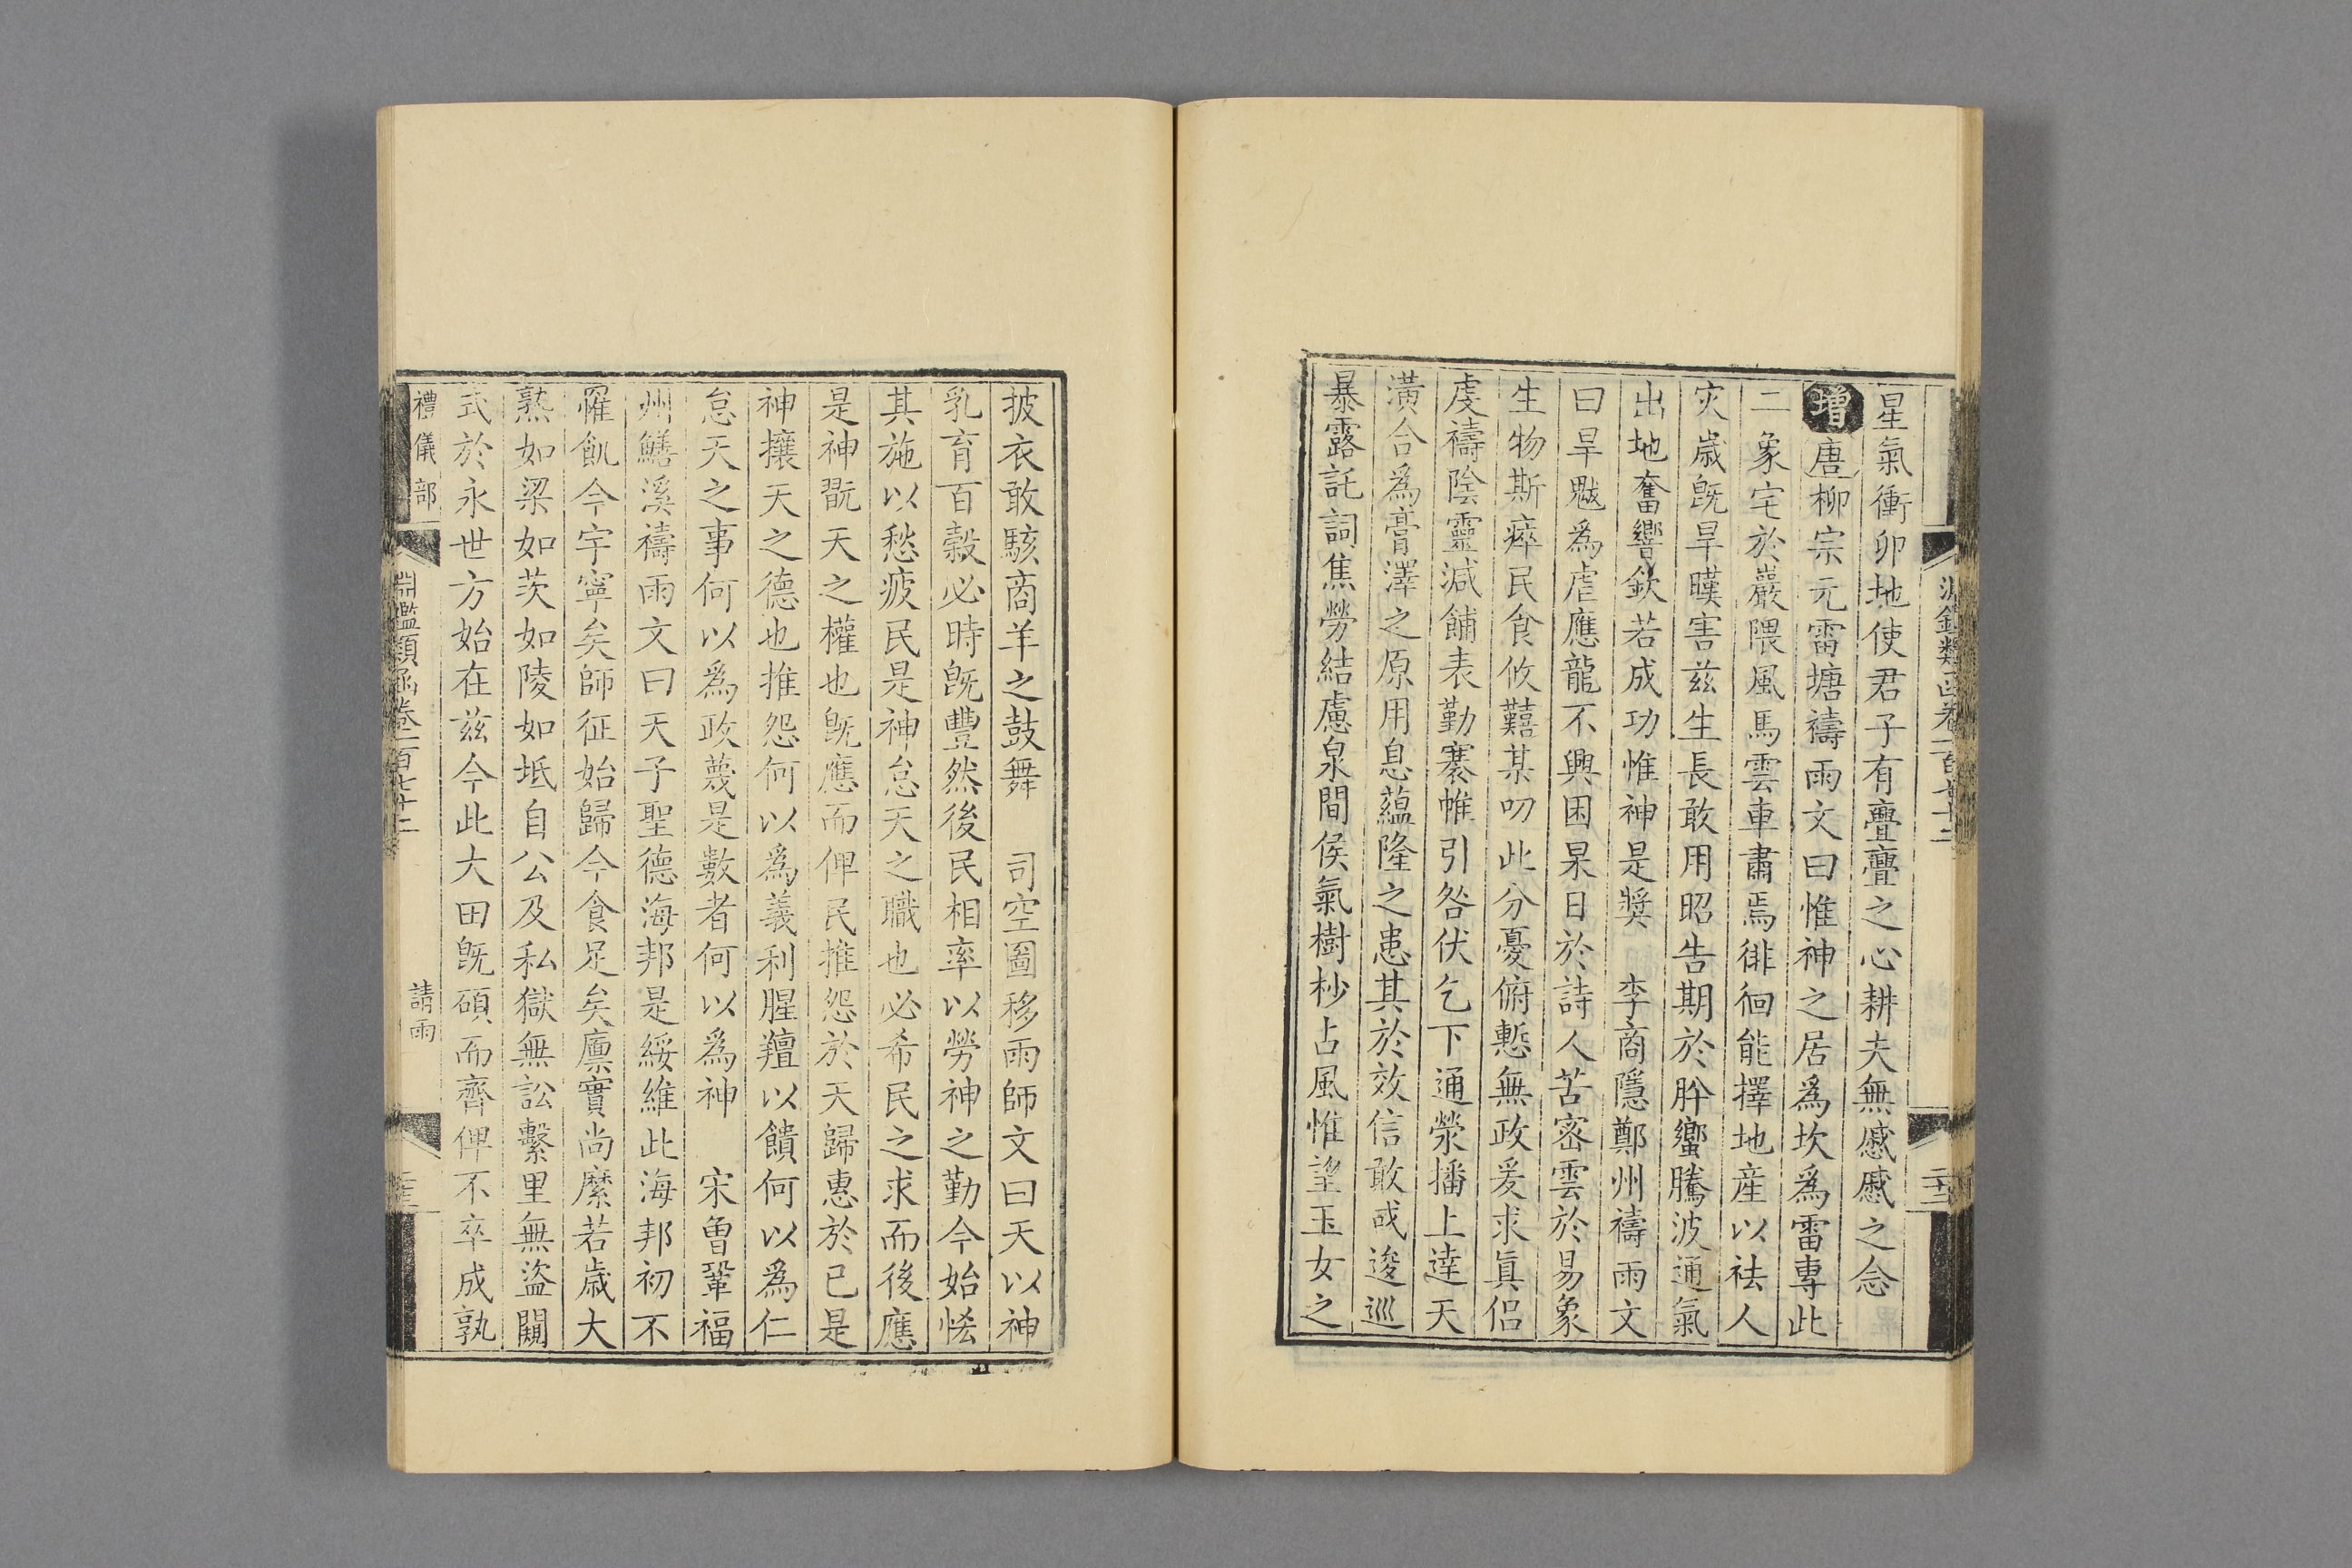 星氣衝卯地使君子有亹亹之心耕夫無慼慼之念
增唐柳宗元雷塘禱雨文曰惟神之居爲坎爲雷專此
二象宅於巖隈風馬雲車肅焉徘徊能擇地産以祛人
灾歲旣旱暵害兹生長敢用昭告期於肸蠁騰波通氣
出地奮響欽若成功惟神是奬　李商隱鄭州禱雨文
曰旱魃爲虐應龍不興困杲日於詩人苦密雲於易象
生物斯瘁民食攸囏某叨此分憂俯慙無政爰求眞侣
虔禱陰靈減餔表勤褰帷引咎伏乞下通滎播上達天
潢合爲膏澤之原用息蘊隆之患其於效信敢或逡巡
暴露託詞焦勞結慮泉間侯氣樹杪占風惟望玉女之
披衣敢駭商羊之鼓舞　司空圖移雨師文曰天以神
乳育百穀必時旣豐然後民相率以勞神之勤今始恡
其施以愁疲民是神怠天之職也必希民之求而後應
是神翫天之權也旣應而俾民推怨於天歸惠於已是
神攘天之德也推怨何以爲義利腥羶以饋何以爲仁
怠天之事何以爲政蔑是數者何以爲神　宋曾鞏福
州鱔溪禱雨文曰天子聖德海邦是綏維此海邦初不
罹飢今宇寧矣師征始歸今食足矣廪實尚縻若歲大
熟如梁如茨如陵如坻自公及私獄無訟繫里無盜闚
式於永世方始在兹今此大田旣碩而齊俾不卒成孰
禮儀部
淵鑑類函卷一百七十二
請雨